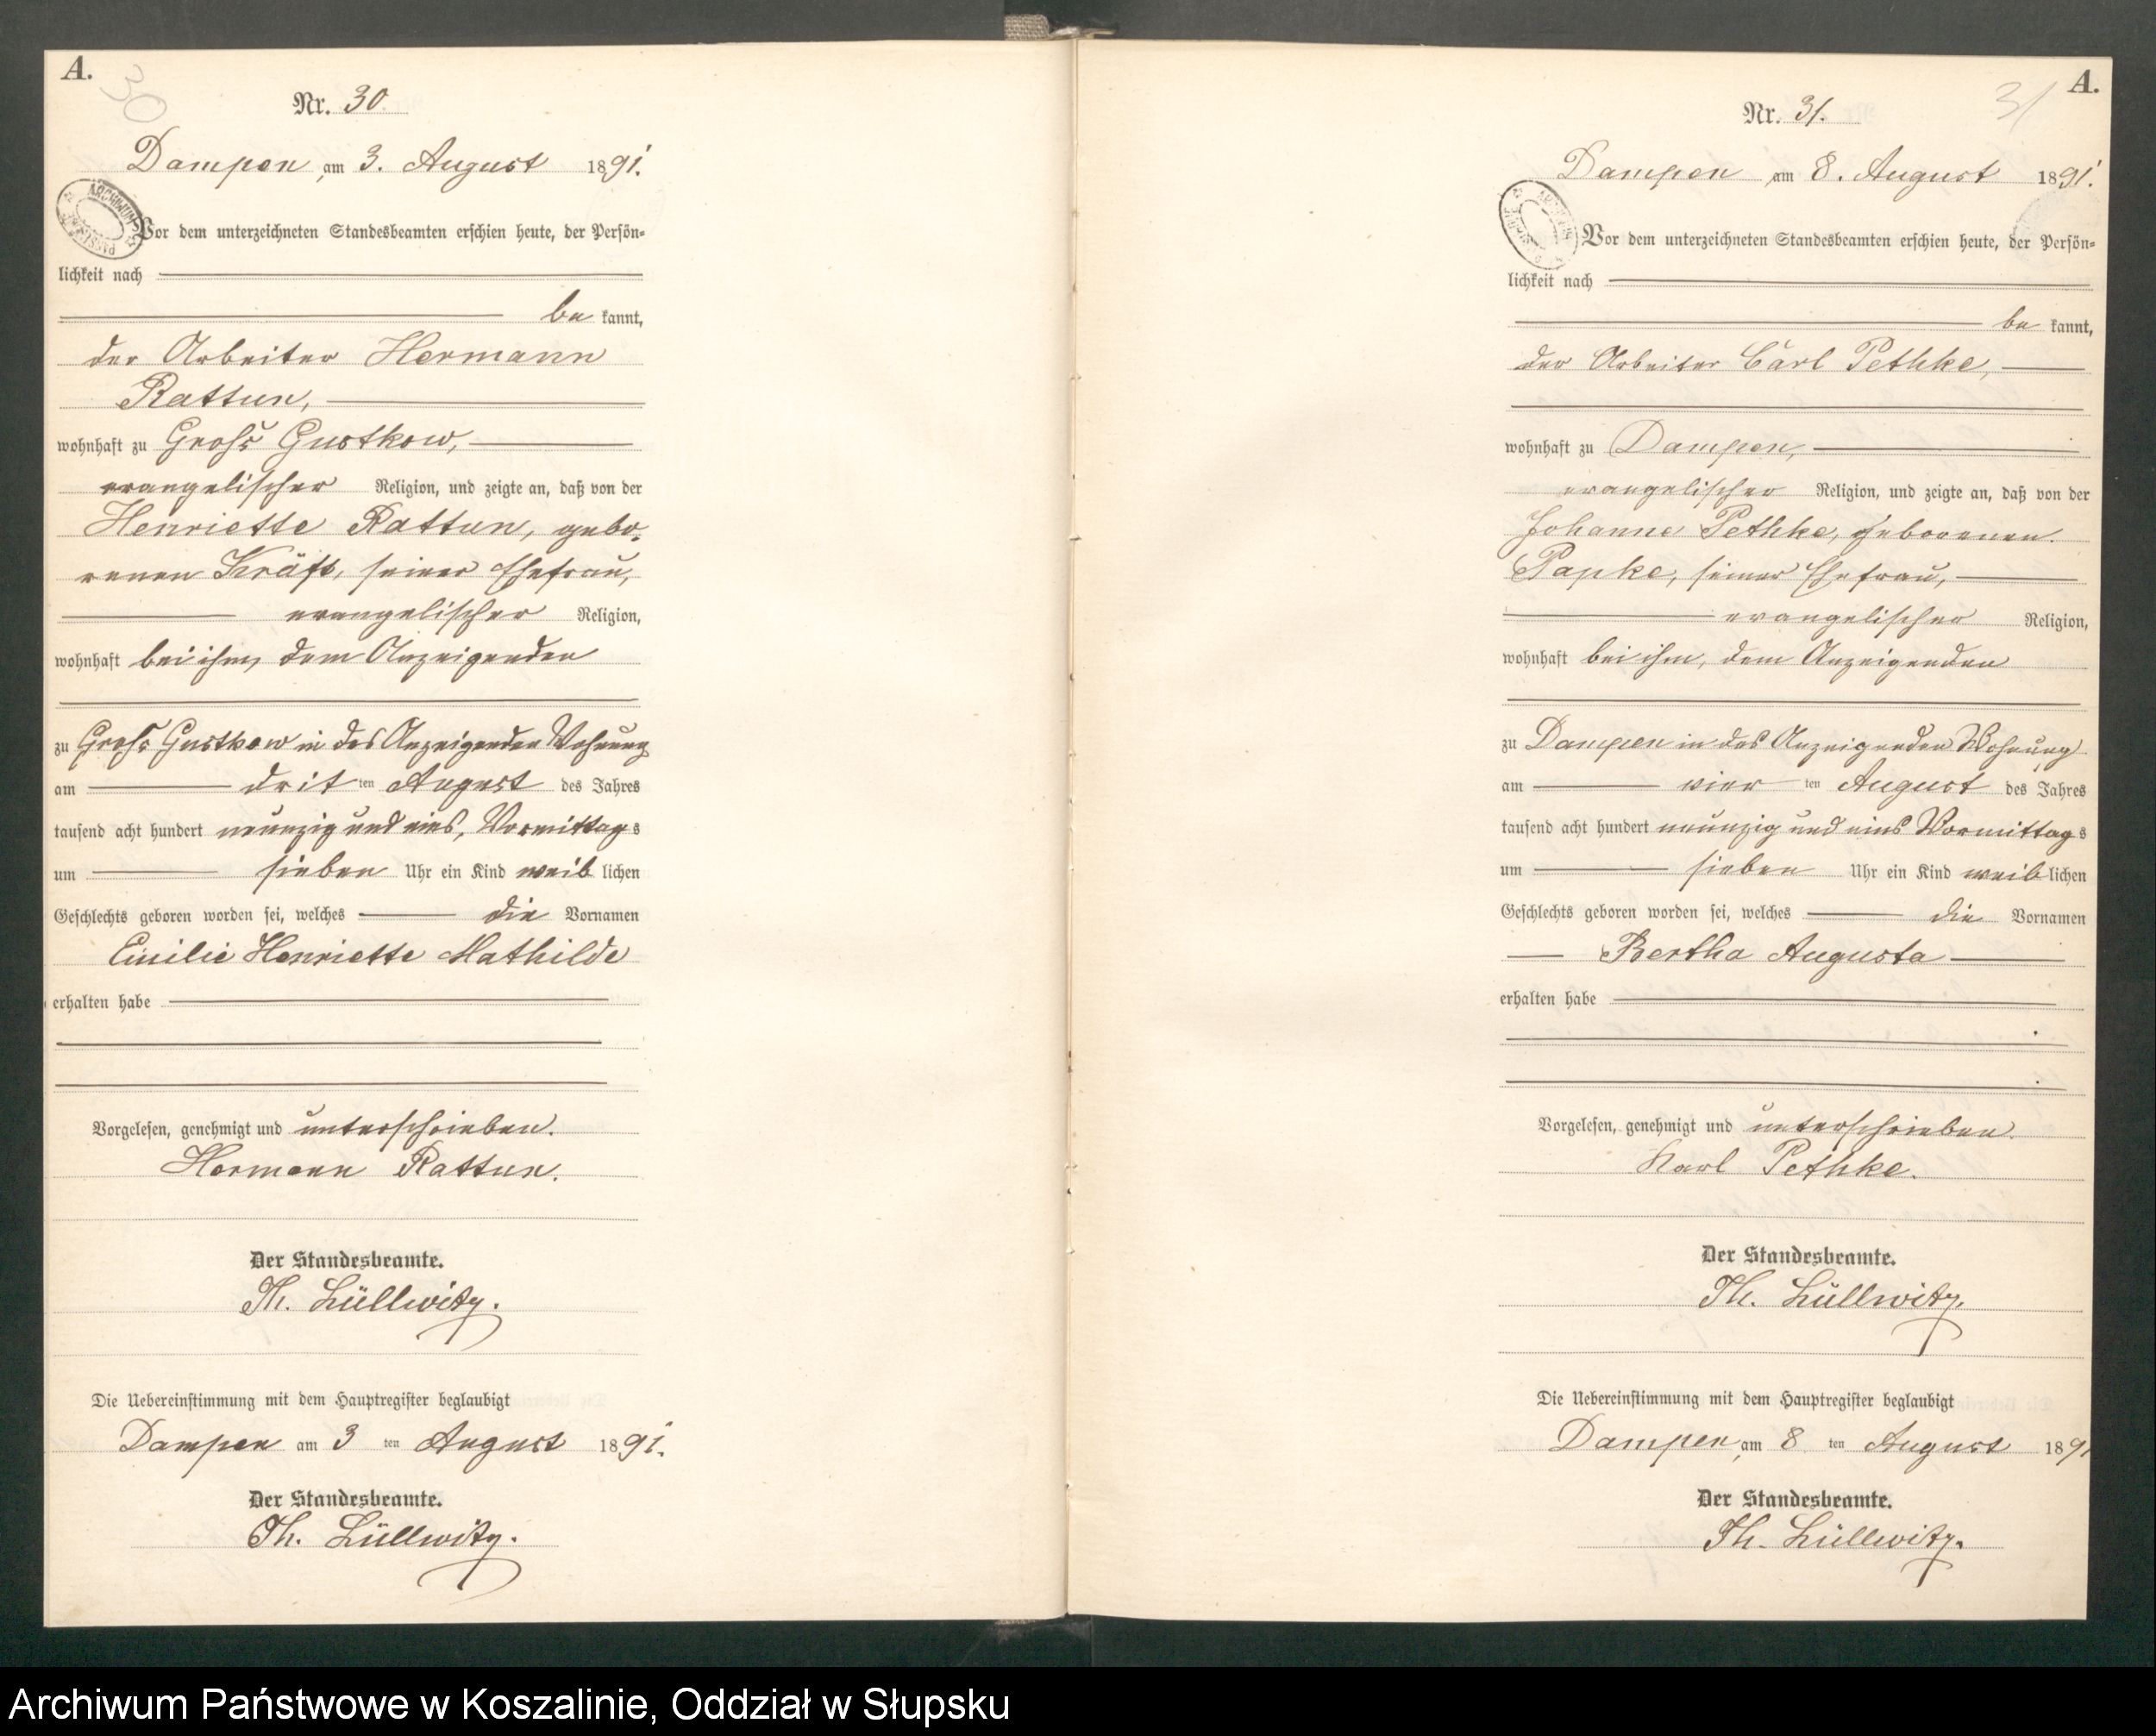 A.
30
Nr. 30
Dampen, am 3. August 1891.
Vor dem unterzeichneten Standesbeamten erschien heute, der Persön-
lichkeit nach
be kannt,
der Arbeiter Hermann
Rattun,
wohnhaft zu Groß Gustkow,
evangelischer Religion, und zeigte an, daß von der
Henriette Rattun, gebo-
renen Kräft, seiner Ehefrau,
evangelischer Religion,
wohnhaft bei ihm, dem Anzeigenden
zu Groß Gustkow in des Anzeigenden Wohnung
am drit ten August des Jahres
tausend acht hundert neunzig und eins, Vormittags
um sieben Uhr ein Kind weib lichen
Geschlechts geboren worden sei, welches die Vornamen
Emilie Henriette Mathilde
erhalten habe
Vorgelesen, genehmigt und unterschrieben.
Hermann Rattun.
Der Standesbeamte.
Th. Lüllwitz.
Die Uebereinstimmung mit dem Hauptregister beglaubigt
Dampen am 3 ten August 1891.
Der Standesbeamte.
Th. Lüllwitz.
A.
31
Nr. 31.
Dampen, am 8. August 1891.
Vor dem unterzeichneten Standesbeamten erschien heute, der Persön-
lichkeit nach
be kannt,
der Arbeiter Carl Pethke,
wohnhaft zu Dampen,
evangelischer Religion, und zeigte an, daß von der
Johanne Pethke, geborenen
Papke, seiner Ehefrau,
evangelischer Religion,
wohnhaft bei ihm, dem Anzeigenden
zu Dampen in des Anzeigenden Wohnung
am vier ten August des Jahres
tausend acht hundert neunzig und eins Vormittags
um sieben Uhr ein Kind weib lichen
Geschlechts geboren worden sei, welches die Vornamen
Bertha Augusta
erhalten habe
Vorgelesen, genehmigt und unterschrieben.
Karl Pethke.
Der Standesbeamte.
Th. Lüllwitz.
Die Uebereinstimmung mit dem Hauptregister beglaubigt
Dampen, am 8 ten August 1891
Der Standesbeamte.
Th. Lüllwitz.
Archiwum Państwowe w Koszalinie, Oddział w Słupsku